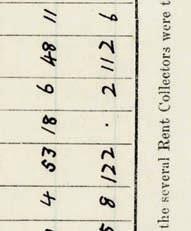 4 53 18 6 48 11
8 122 . 2 112 6
the several Rent Collectors were